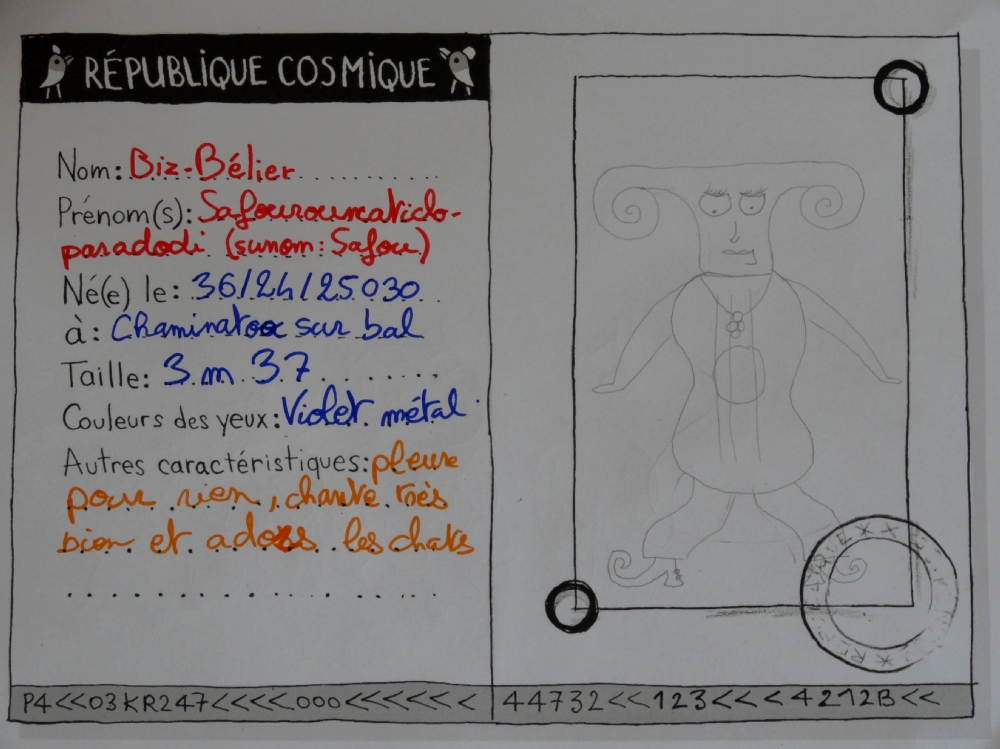 RÉPUBLIQUE COSMIQUE
Nom: Biz-Bélier
Prénom(s): Safouroumaticlo-
paradodi (surnom: Safou)
Né(e) le: 36/24/25030
à: Chaminatoox sur bal
Taille: 3 m 37
Couleurs des yeux: Violet métal
Autres caractéristiques: pleure
pour rien, chante très
bien et adores les chats
P4<<03KR247<<<<<000<<<<<<< 44732<<123<<<<4212B<<